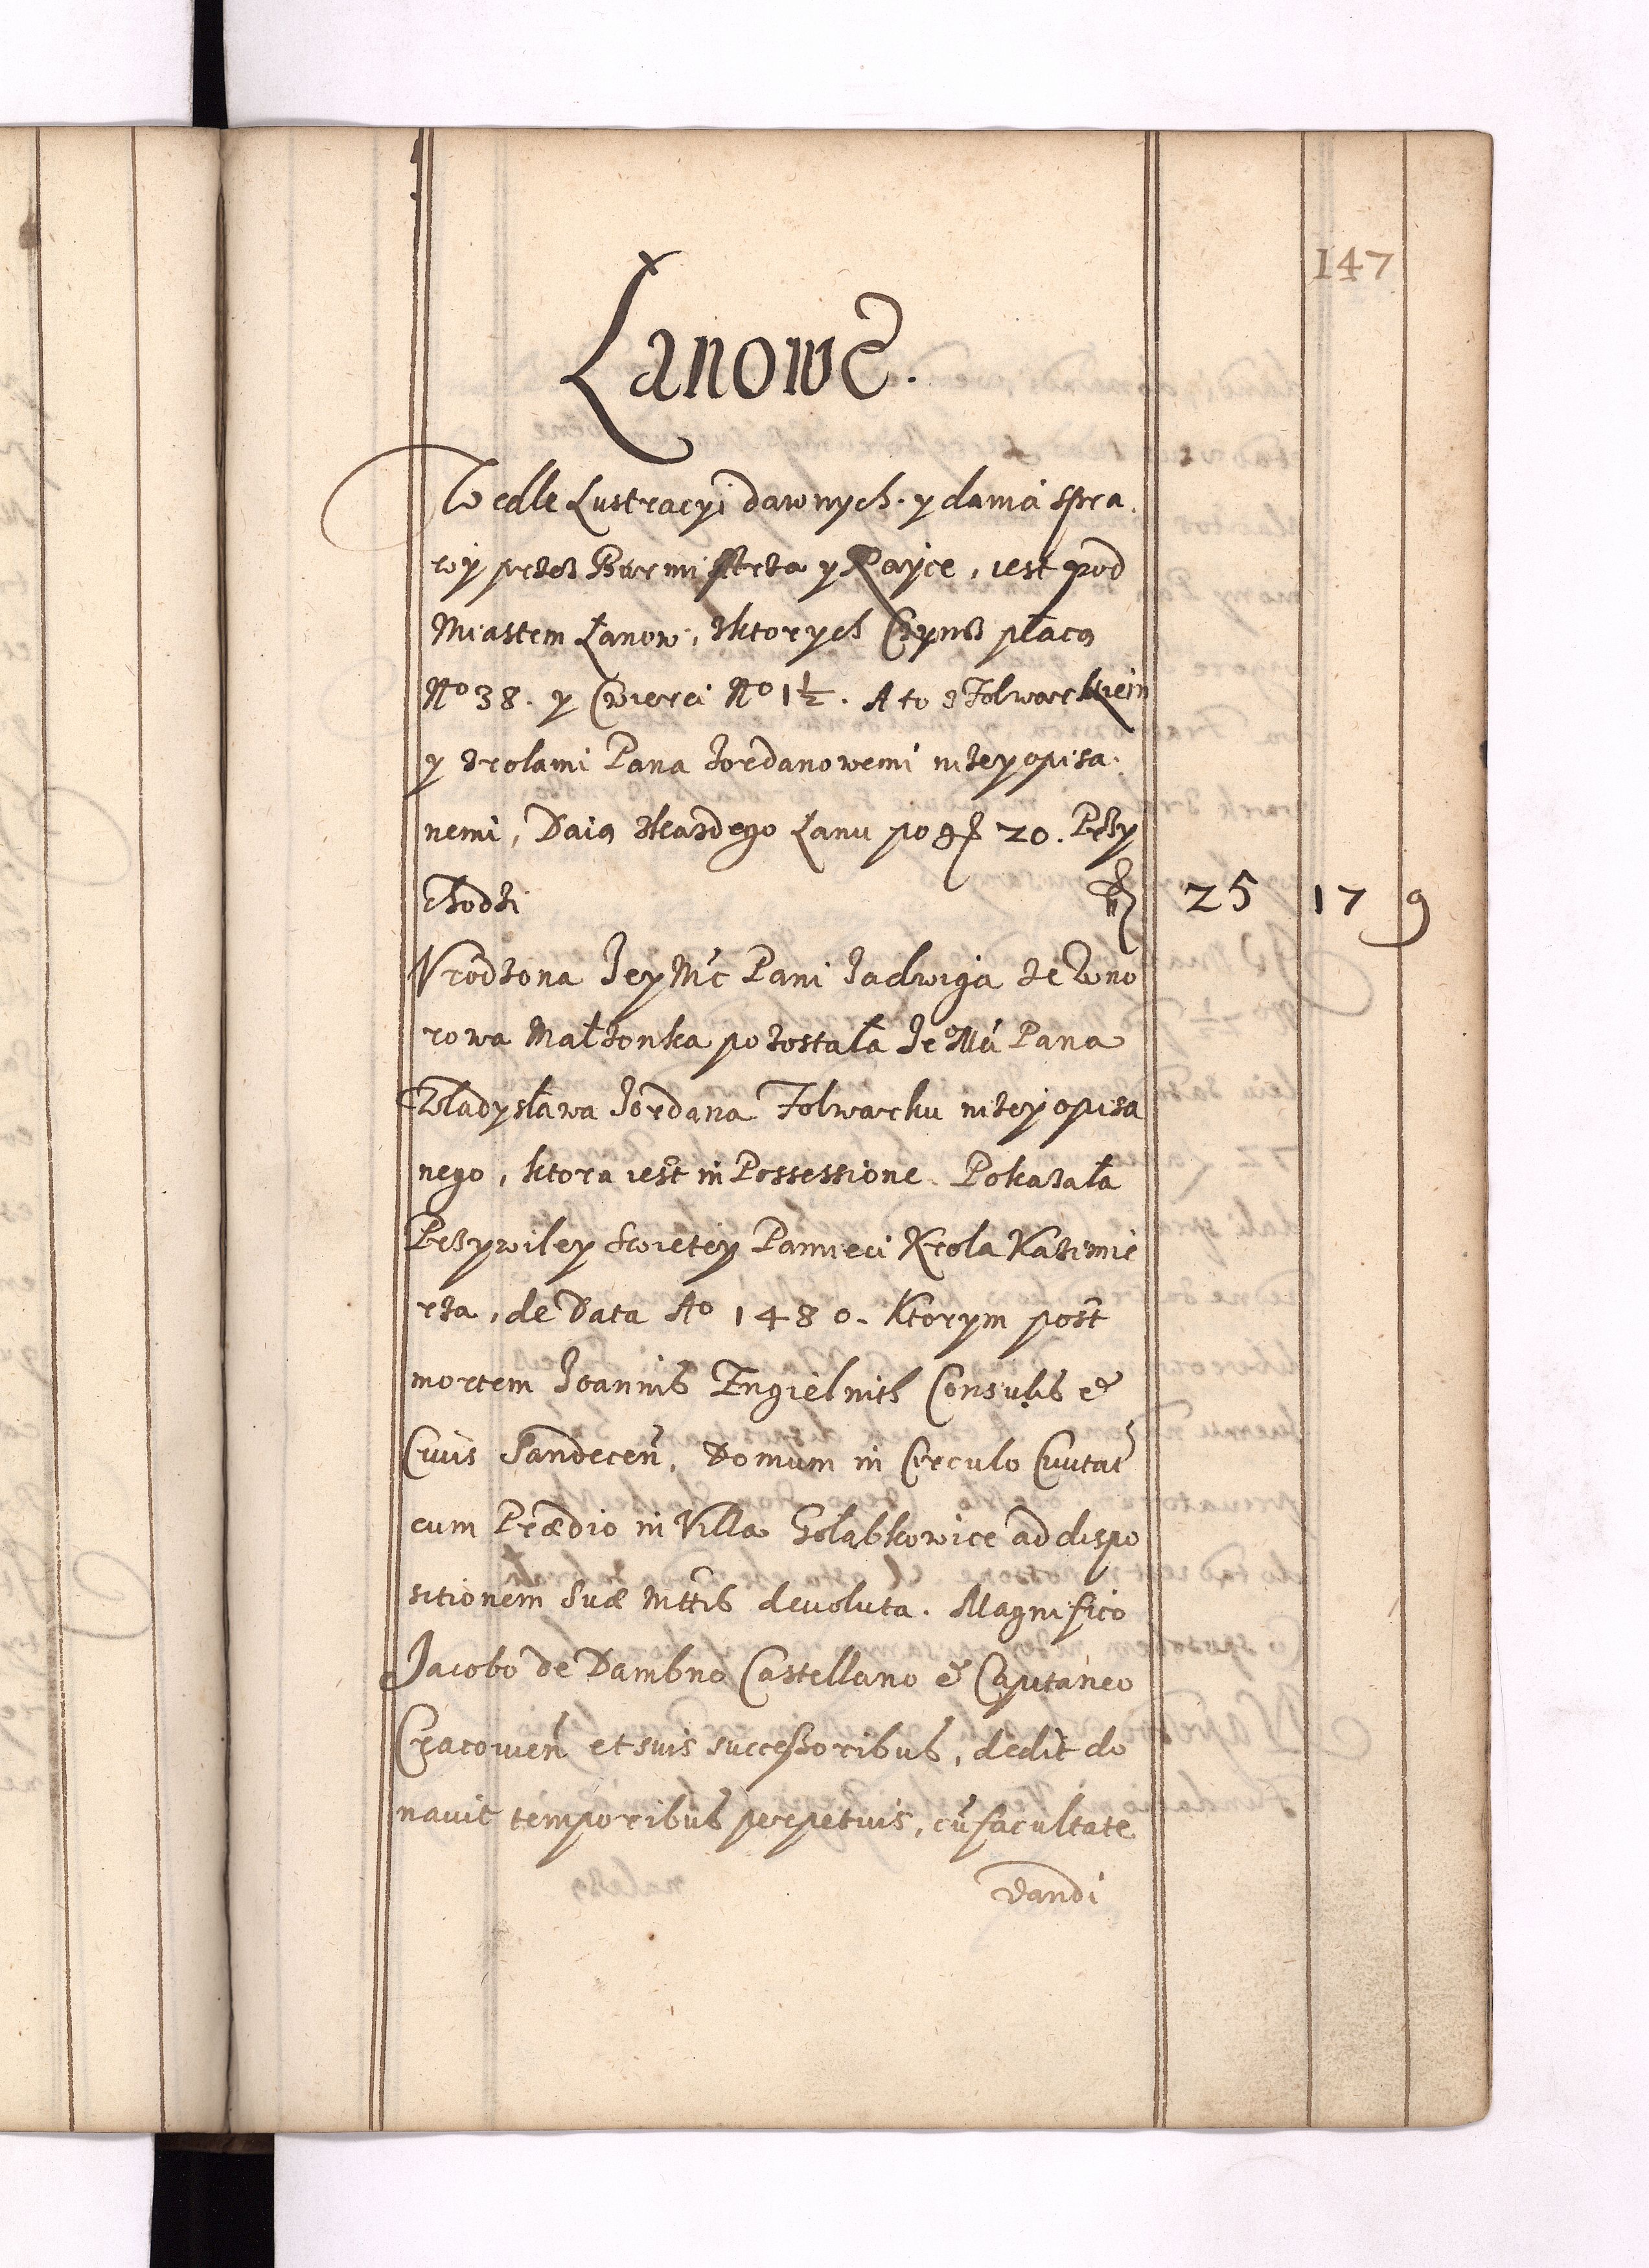 147
Łanowe.
Wedle Lustracyi dawnych. y dania spra.
wy przez Burmistrza y Rayce, iest pod
Miastem Łanow, zktorych Czynsz płacą
No 38. y Cwierci No 1½. A to z Folwarkiem
y zrolami Pana Jordanowemi nizey opisa.
nemi, Daią zkazdego Łanu po gr 20. Przy
chodzi fl 25 17 9
Vrodzona Jey Mć Pani Jadwiga ze Wno
rowa Małzonka pozostała Je Mći Pana
Władysława Jordana Folwarku nizey opisa
nego, ktora iest in Possessione. Pokazała
Przywiley Swietey Pamieci Krola Kazimie
rza, de Data Ao 1480. Ktorym post
mortem Joannis Engielnith Consulis et
Civis Sandecen̄, Domum in Circulo Civitat
cum Prædio in Villa Gołąbkowice ad dispo
sitionem Suæ Mttis devoluta. Magnifico
Jacobo de Dambno Castellano et Capitaneo
Cracovien̄ et suis successoribus, dedit do
navit temporibus perpetuis, cū facultate
dandi